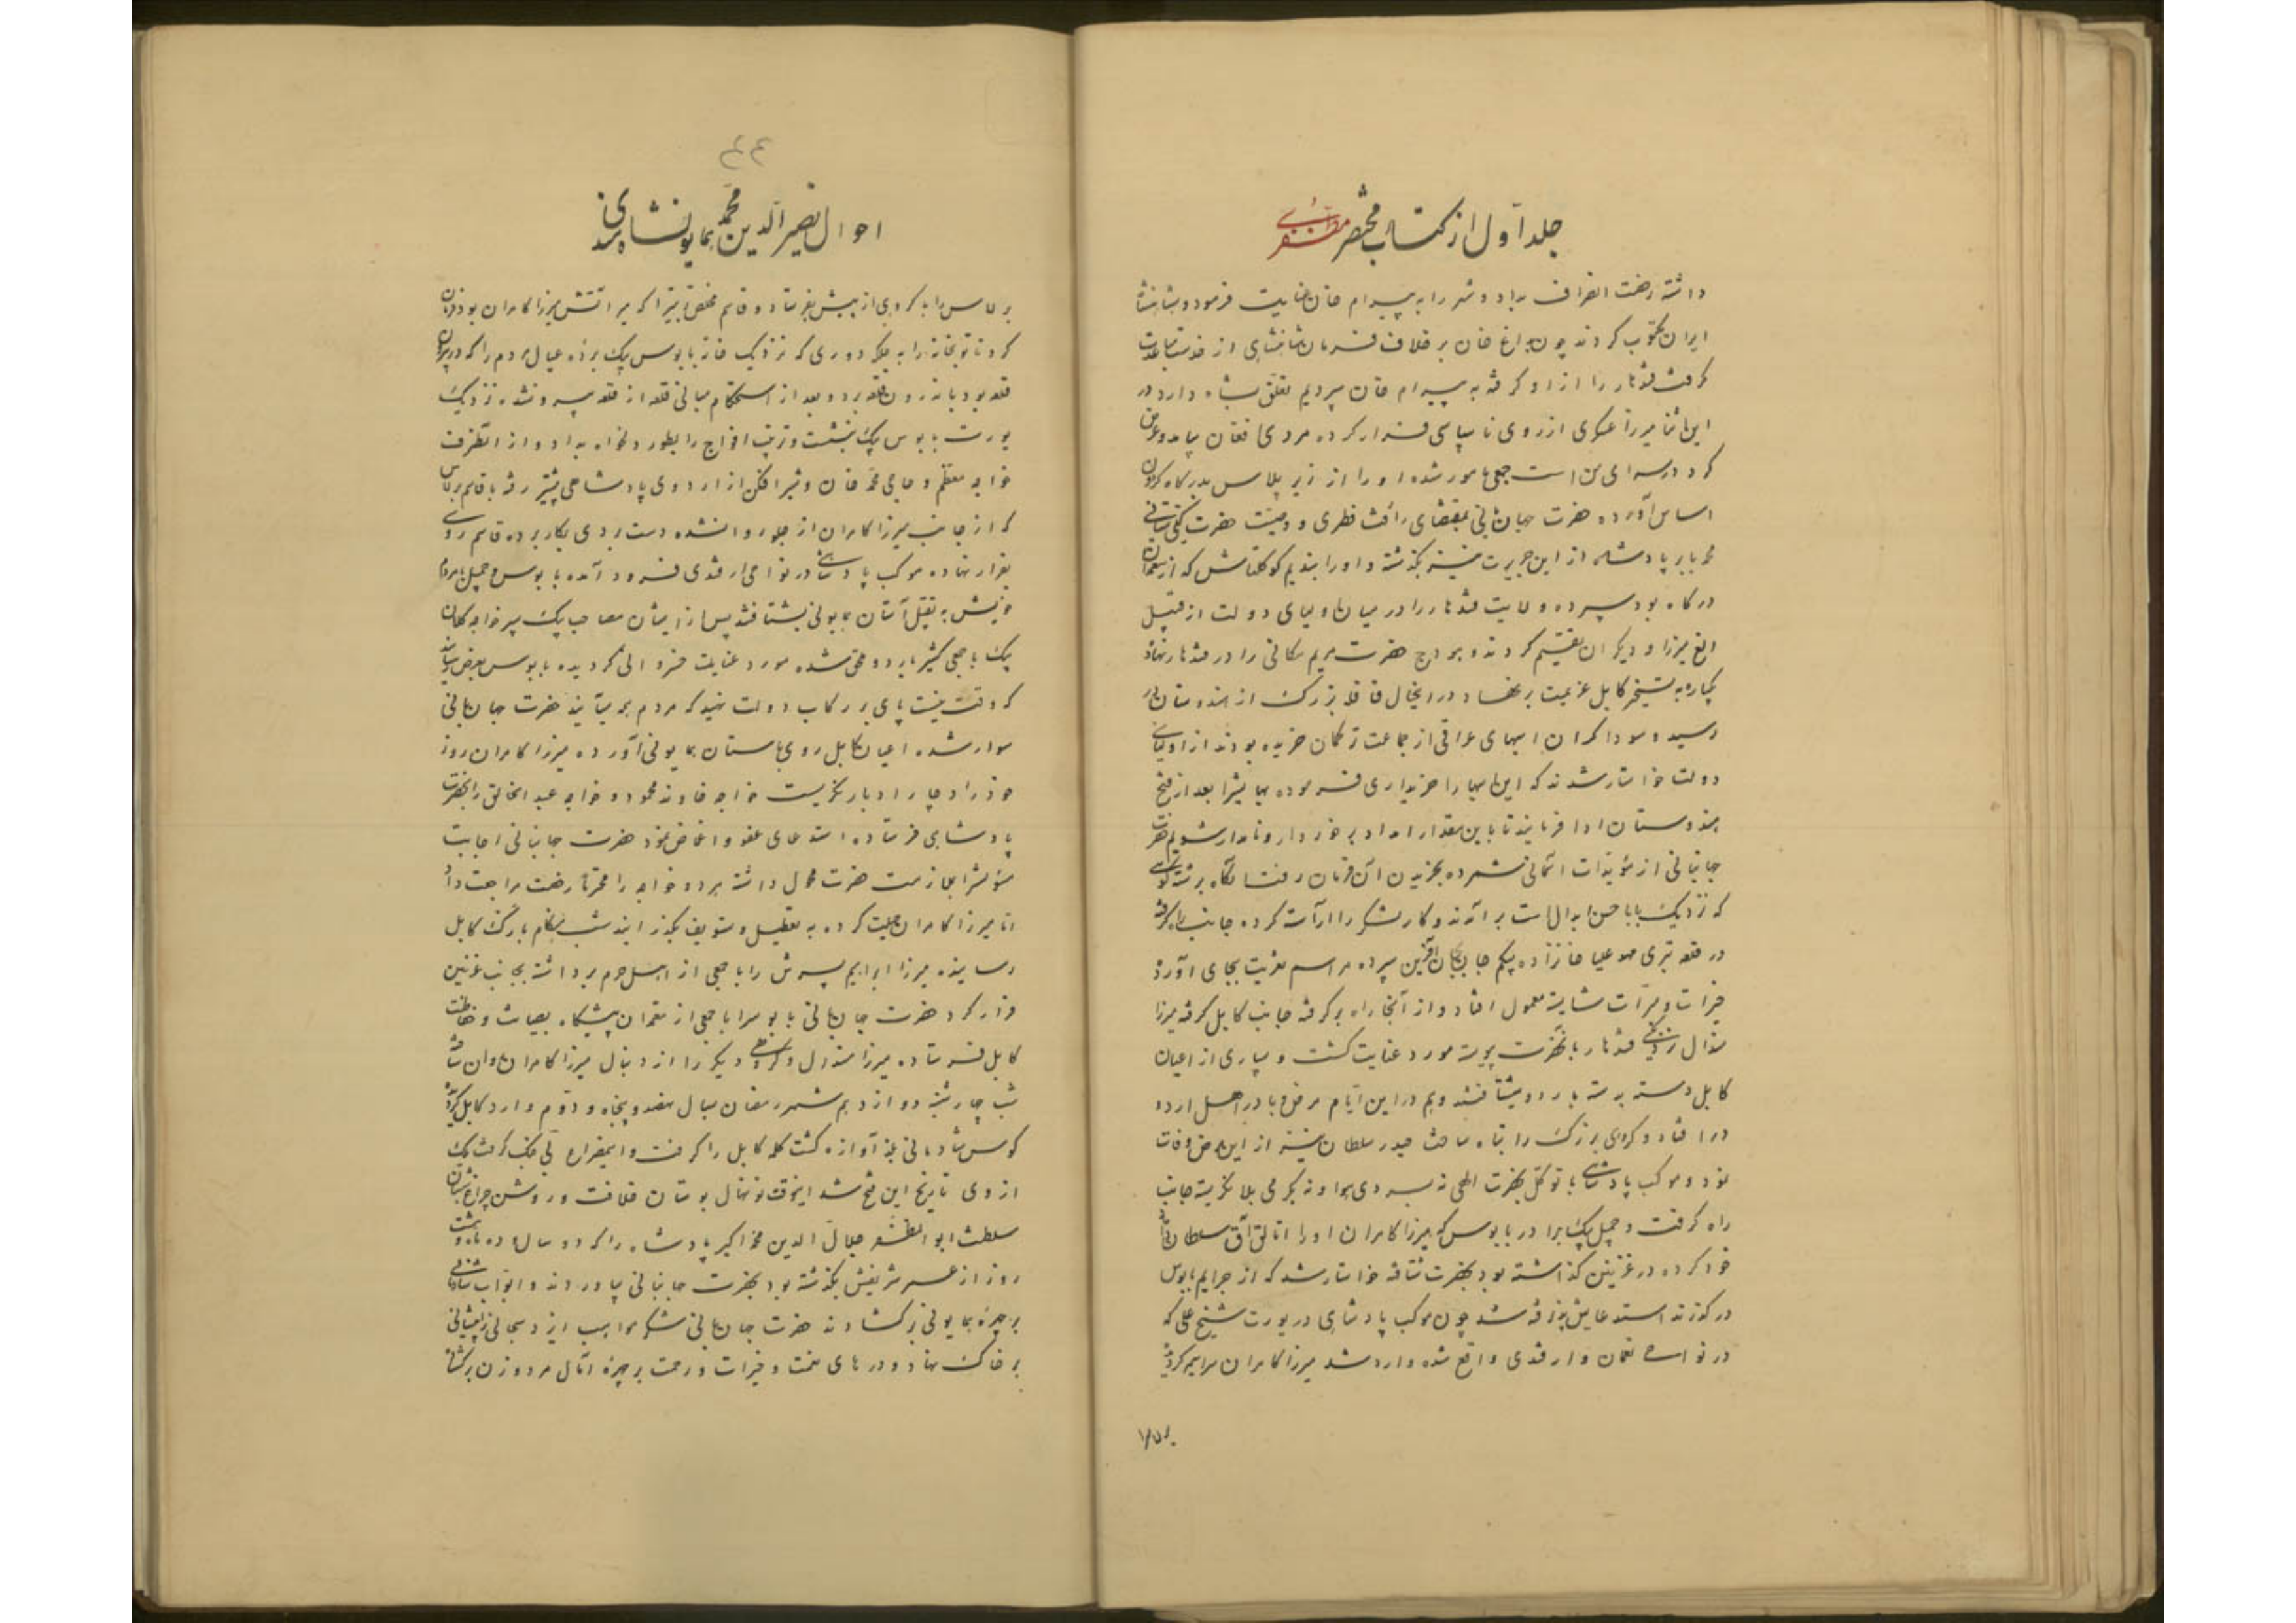 جلد اول از کتاب مختصر
داشته رخصت انصراف بداد و شهر را به بیرام خان عنایت فرمود و بشاهنشاه
ایران مکتوب کردند چون بداغ خان بر خلاف فرمان شاهنشاهی از خدمت تباعدت
گرفت قندهار را از او گرفته به بیرام خان سپردیم تعلق بشاه دارد در
این اثنا میرزا عسکری از روی ناسپاسی فرار کرده مردی افغان بیامد و عرض
کرد در سرای من است جمعی مامور شده او را از زیر پلاس بدرگاه گردون
اساس آورده حضرت جهانبانی بمقتضای رأفت فطری و وصیت حضرت گیتی ستانی
محمد بابر پادشاه از این جریرت نیز بگذشته و او را بندیم کوکلتاش که از معتمدان
درگاه بود سپرده ولایت قندهار را در میان اولیای دولت از قبیل
الغ میرزا و دیگران تقسیم کردند و هودج حضرت مریم مکانی را در قندهار نهاده
یکباره به تسخیر کابل عزیمت بر نهاد و در اینحال قافله بزرگ از هندوستان در
رسید و سوداگران اسبهای عراقی از جماعت ترکمان خریده بودند از اولیای
دولت خواستار شدند که این اسبها را خریداری فرموده بها بیشرا بعد از فتح
هندوستان ادا فرمایند تا باین مقدار امداد برخوردار و نامدار شویم حضرت
جهانبانی از مؤیدات آسمانی شمرده بخریدن آن فرمان رفت آنگاه بر پشته کوهی
که نزدیک بابا حسن ابدال است بر آمدند و کار لشکر را آراسته کرده جانب راه گرفته
در قلعه تیری مهد علیا خانزاده بیگم جان بجهان آفرین سپرده مراسم تعزیت بجای آورده
خیرات و مبرات شایسته معمول افتاد و از آنجا راه برگرفته جانب کابل گرفته میرزا
هندال نزدیکی قندهار بآنحضرت پیوسته مورد عنایت گشت و بسیاری از اعیان
کابل دسته بدسته باردو بشتافتند و هم در این ایام مرض وبا در اهل اردو
در افتاد و گروهی بزرگ را تباه ساخت حیدر سلطان نیز از این مرض وفات
نمود و موکب پادشاهی با توکل بحضرت الهی نه بسردی هوا و نه بگرمی بلا نگریسته جانب
راه گرفت و جمیل بیک برادر بابوس که میرزا کامران او را اتالیق آق سلطان داماد
خود کرده در غزنین گذاشته بود بحضرت شتافته خواستار شد که از جرایم بابوس
درگذرند استدعایش پذیرفته شد چون موکب پادشاهی در یورت شیخ علی که
در نواحی نغمان و ارقندی واقع شده وارد شد میرزا کامران سراسیمه گردیده
۴۴
احوال نصیر الدین محمد همایونشاه هندی
برلاس را با گروهی از پیش بفرستاد و قاسم مخلص تبتی را که میر آتش میرزا کامران بود فرمان
کرد تا توپخانه را به جلکه دوری که نزدیک خانه بابوس بیک برده عیال مردم را که در بیرون
قلعه بود باندرون قلعه برد و بعد از استحکام مبانی قلعه از قلعه بیرون شده نزدیک
یورت بابوس بیک بنشست و ترتیب افواج را بطور دلخواه بداد و از آنطرف
خواجه معظم و حاجی محمد خان و شیر افکن از اردوی پادشاهی پیشتر رفته با قاسم برلاس
که از جانب میرزا کامران از جلو روانشده دست بردی بکار برده قاسم روی
بفرار نهاده موکب پادشاهی در نواحی ارقندی فرود آمده بابوس و جمیل با مردم
خویش به تقبیل آستان همایونی بشتافتند پس از ایشان مصاحب بیک پسر خواجه کلان
بیک با جمعی کثیر باردو ملحق شده مورد عنایت خسروانی گردیده بابوس بعرض رسانید
که وقت نیست پای بر رکاب دولت نهید که مردم همه میآیند حضرت جهانبانی
سوار شده اعیان کابل روی بآستان همایونی آورده میرزا کامران روز
خود را دچار ادبار نگریست خواجه خاوند محمود و خواجه عبد الخالق را بحضرت
پادشاهی فرستاده استدعای عفو و اغماض نمود حضرت جهانبانی اجابت
مسئولشرا بملازمت حضرت محول داشته هر دو خواجه را محترما رخصت مراجعت داد
اما میرزا کامران حیلت کرده به تعطیل و تسویف بگذرانید شب هنگام بارگ کابل
رسانیده میرزا ابراهیم پسرش را با جمعی از اهل حرم برداشته بجانب غزنین
فرار کرد حضرت جهانبانی بابوس را با جمعی از معتمدان پیشگاه بصیانت و حفاظت
کابل فرستاده میرزا هندال و گروهی دیگر را از دنبال میرزا کامران دوان ساخته
شب چهارشنبه دوازدهم شهر رمضان سال نهصد و پنجاه و دوم وارد کابل گردیده
کوس شادمانی بلند آوازه گشت کلمه کابل را گرفت و اینمصراع بی جنگ گرفت ملک کابل
از وی تاریخ این فتح شد اینوقت نونهال بوستان خلافت و روشن چراغ شبستان
سلطنت ابو المظفر جلال الدین محمد اکبر پادشاه را که دو سال و دو ماه و هشت
روز از عمر شریفش بگذشته بود بحضرت جهانبانی بیاوردند و ابواب شادمانی
بر چهره همایونی برگشادند حضرت جهانبانی شکر مواهب ایزد سبحانی را پیشانی
بر خاک نهاد و درهای نعمت و خیرات و رحمت بر چهره آمال مرد و زن برگشاد